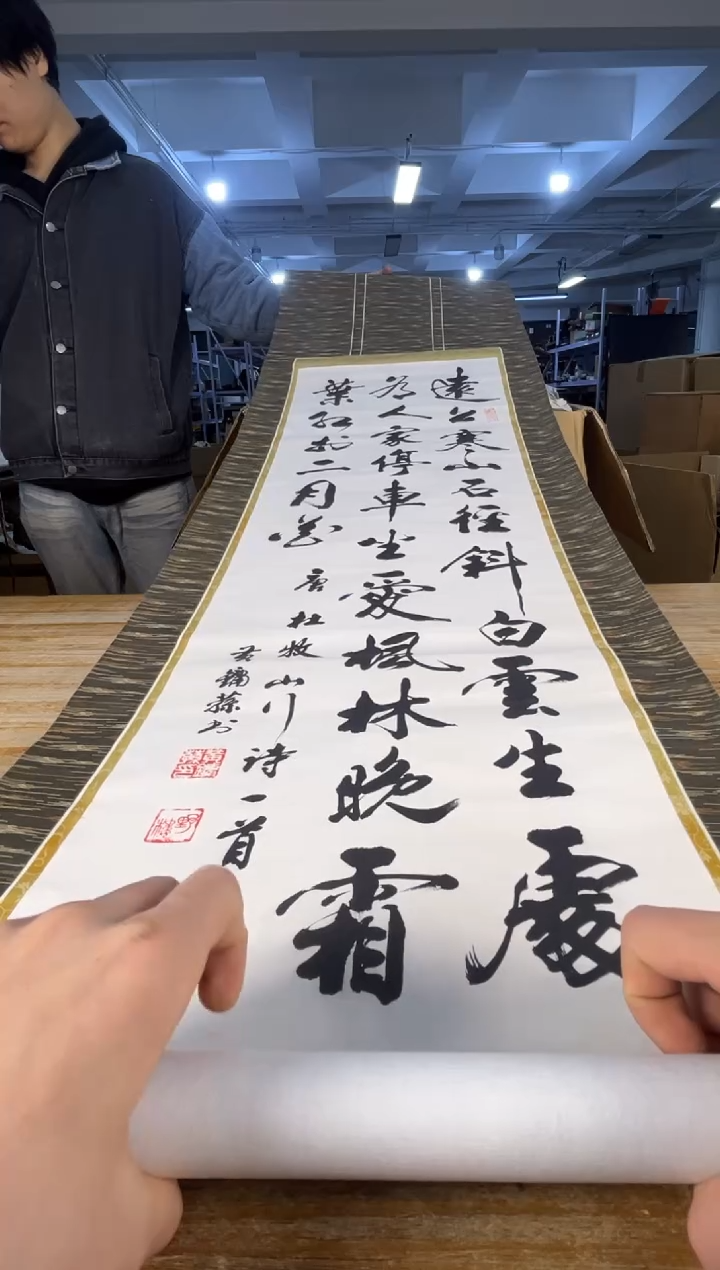 遠上寒山石徑斜白雲生處
有人家停車坐愛楓林晚霜
葉紅於二月花
唐杜牧山行诗一首
书